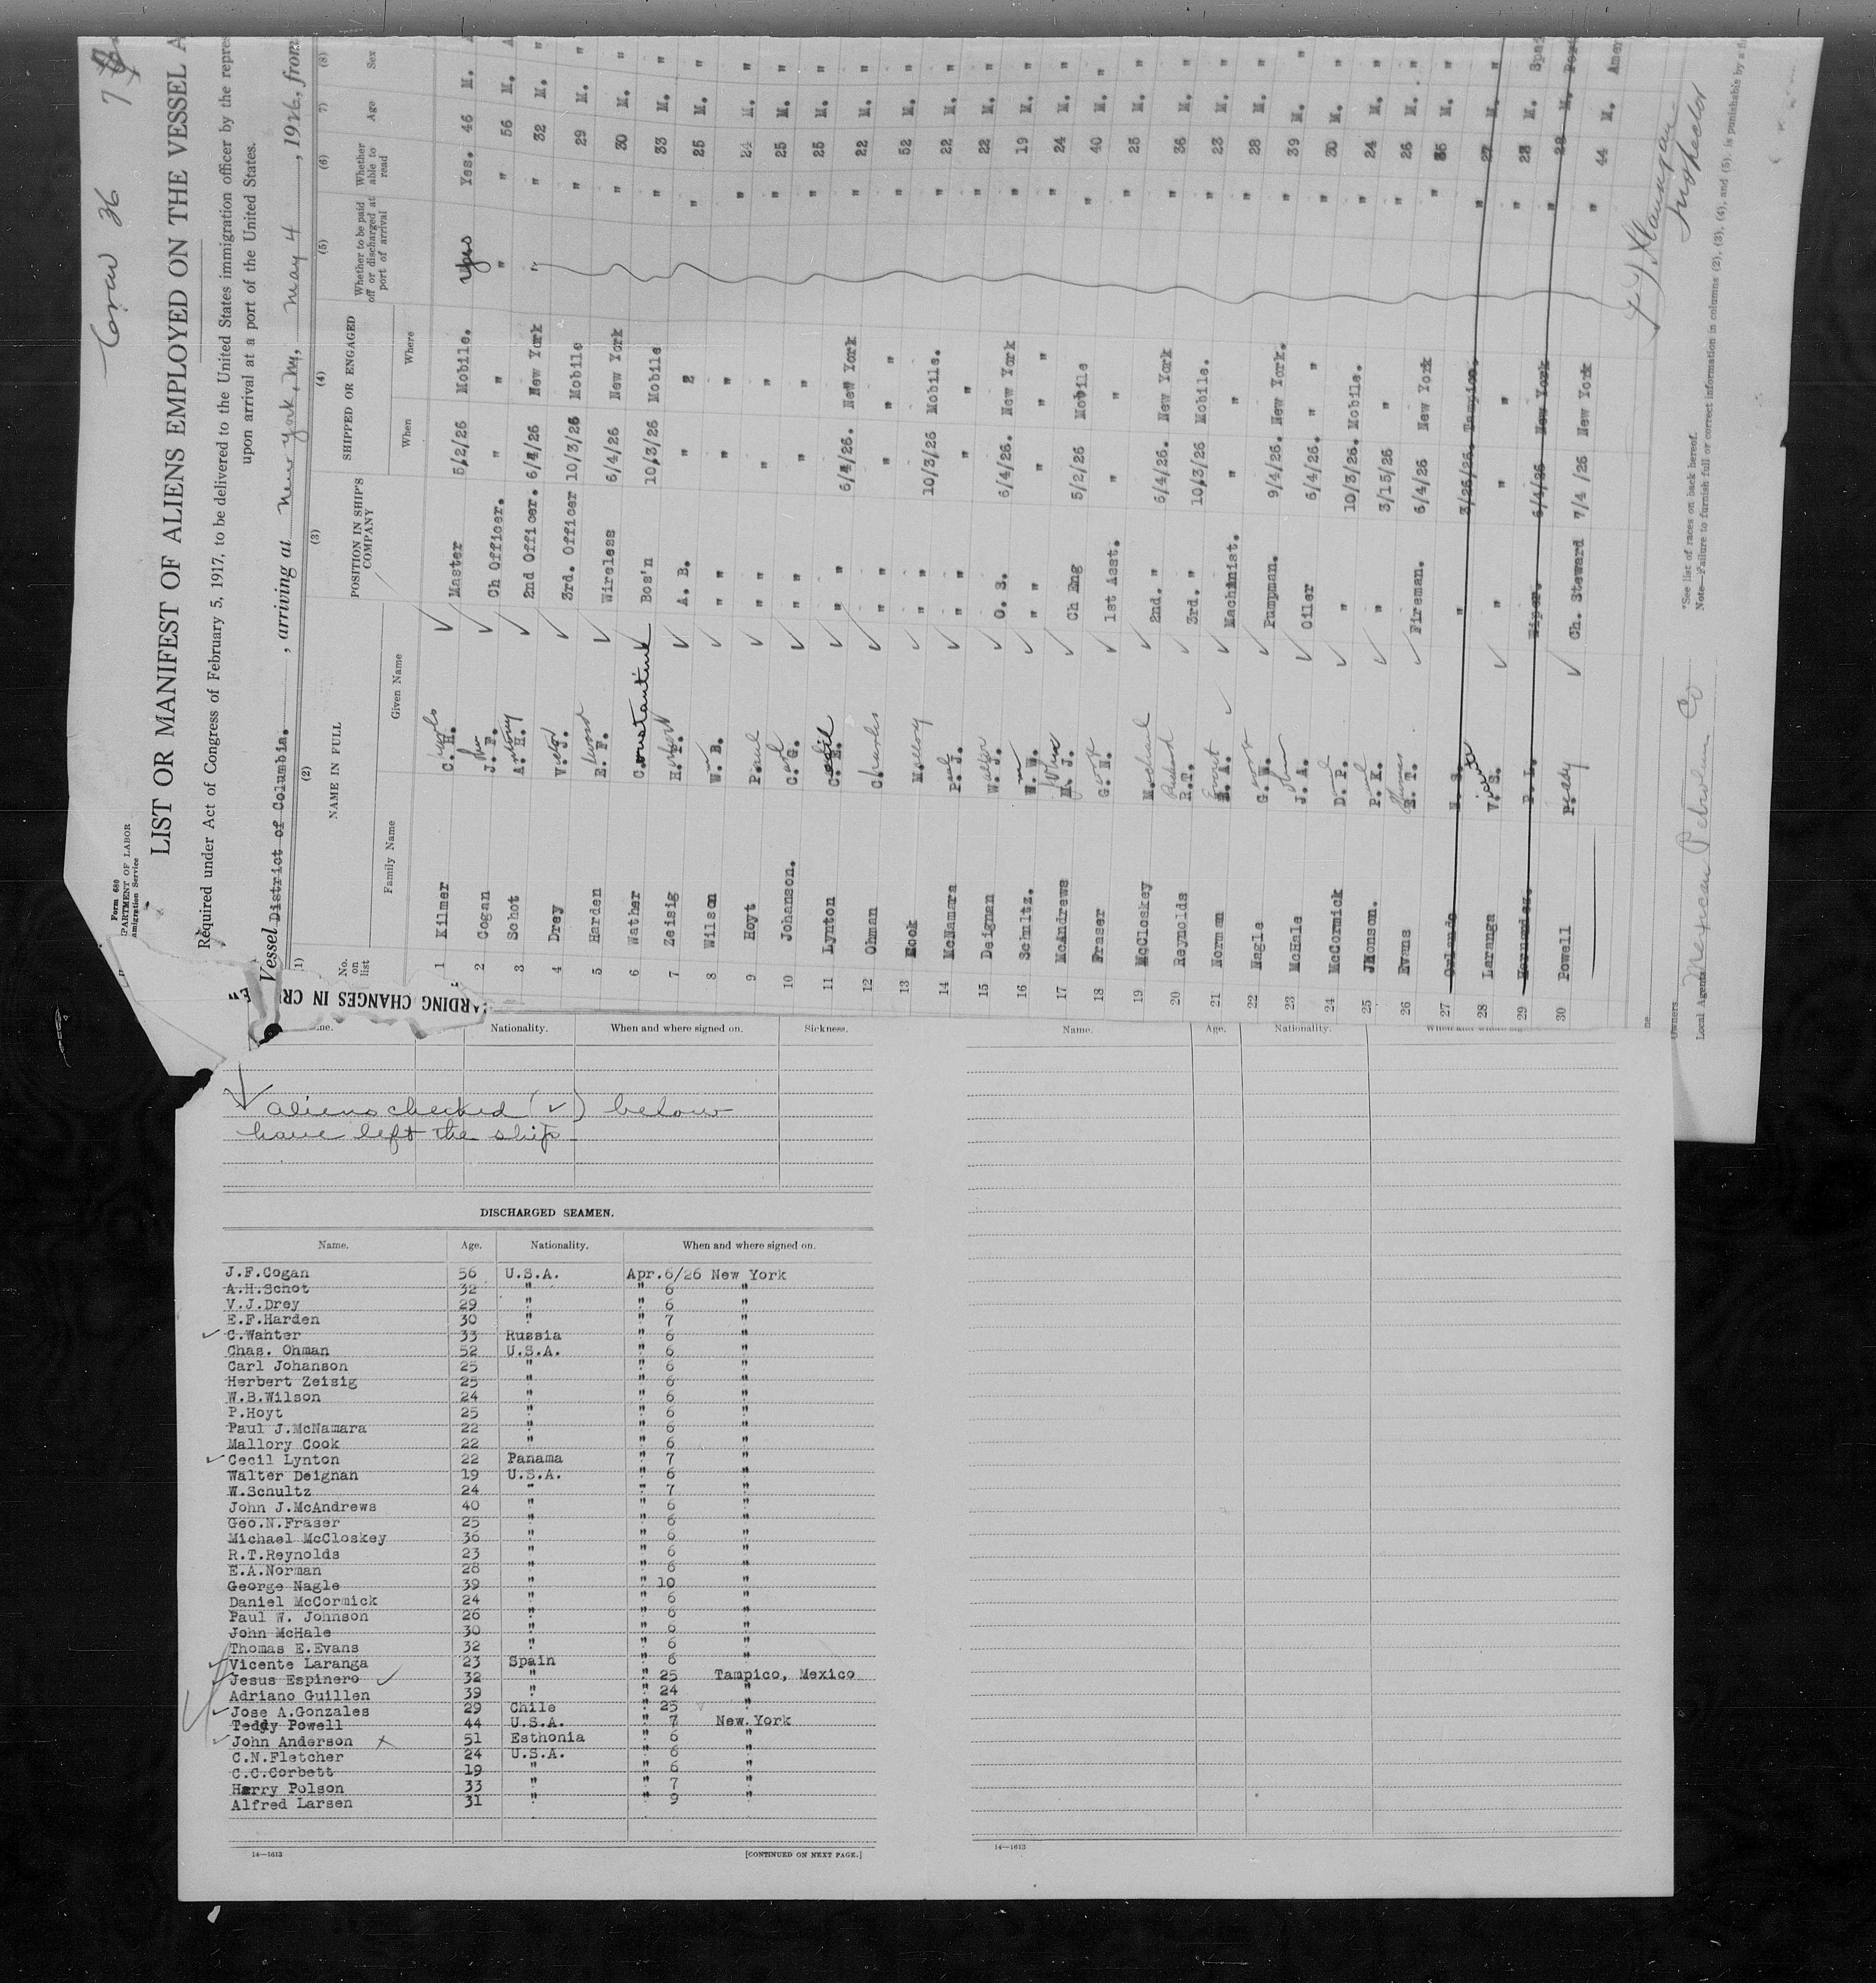 Crew 36 7
Form 680
PARTMENT OF LABOR
migration Service
LIST OR MANIFEST OF ALIENS EMPLOYED ON THE VESSEL A
Required under Act of Congress of February 5, 1917, to be delivered to the United States immigration officer by the repres
upon arrival at a port of the United States.
Vessel District of Columbia. , arriving at New York, NY, May 4 , 1926, from
(1) (2) (3) (4) (5) (6) (7) (8)
No. on list NAME IN FULL POSITION IN SHIP'S COMPANY SHIPPED OR ENGAGED Whether to be paid off or discharged at port of arrival Whether able to read Age Sex
Family Name Given Name When Where
1 Kilmer C. H. Master 5/2/26 Mobile. Yes Yes. 46 M.
2 Cogan J. F. Ch Officer. " " " " 56 M.
3 Schot A. H. Antony 2nd Officer. 6/4/26 New York " " 32 M. "
4 Drey V. J. Victor 3rd. Officer 10/3/26 Mobile " 29 M. "
5 Harden E. F. Elwood Wireless 6/4/26 New York " 30 M. "
6 Wather Constantine Bos'n 10/3/26 Mobile " 33 M. "
7 Zeisig H. P. Herbert A. B. " " " 25 M. "
8 Wilson W. B. " " " " 24 M. "
9 Hoyt Paul " " " " " 25 M. "
10 Johanson. C. G. Carl " " " " " 25 M. "
11 Lynton C. E. Cecil " " 6/4/26. New York " 22 M. "
12 Ohman Charles " " " " " 52 M. "
13 Cook Mallory " " 10/3/26 Mobile. " 22 M. "
14 McNamara P. J. Paul " " " " " 22 M. "
15 Deignan W. J. Walter O. S. 6/4/26. New York " 19 M. "
16 Schultz. W. W. Wm " " " " " 24 M. "
17 McAndrews M. J. John Ch Eng 5/2/26 Mobile " 40 M. "
18 Fraser G. N. George 1st Asst. " " " 25 M. "
19 McCloskey Michael 2nd. " 6/4/26. New York " 36 M. "
20 Reynolds R. T. Richard 3rd. " 10/3/26 Mobile. " 23 M. "
21 Norman E. A. Ernest Machinist. " " " 28 M. "
22 Nagle G. W. George Pumpman. 9/4/26. New York. " 39 M. "
23 McHale J. A. John Oiler 6/4/26. " " " 30 M. "
24 McCormick D. P. " 10/3/26. Mobile. " 24 M. "
25 Jhonson. P. K. Paul " 3/15/26 " " 26 M. "
26 Evans E. T. Thomas Fireman. 6/4/26 New York " 35 M. "
27 Orlando " 3/26/26. Tampico. " 27 M. "
28 Laranga V. S. Vicente " " " " 23 M. Spai
29 Hernandez. P. L. Wiper. 6/4/26 New York " 28 M. Port
30 Powell Teddy Ch. Steward 7/4 /26 New York " 44 M. Amer
Inspector
*See list of races on back hereof.
Note—Failure to furnish full or correct information in columns (2), (3), (4), and (5). is punishable by a fi
Owners
Local Agents Mexican Petroleum Co
ARDING CHANGES IN CR
Nationality. When and where signed on. Sickness.
Name. Age. Nationality.
aliens checked (✓) below
have left the ship
DISCHARGED SEAMEN.
Name. Age. Nationality. When and where signed on.
J.F.Cogan 56 U.S.A. Apr.6/26 New York
A.H.Schot 32 " " 6 "
V.J.Drey 29 " " 6 "
E.F.Harden 30 " " 7 "
✓ C.Wahter 33 Russia " 6 "
Chas. Ohman 52 U.S.A. " 6 "
Carl Johanson 25 " " 6 "
Herbert Zeisig 25 " " 6 "
W.B.Wilson 24 " " 6 "
P.Hoyt 25 " " 6 "
Paul J.McNamara 22 " " 6 "
Mallory Cook 22 " " 6 "
✓ Cecil Lynton 22 Panama " 7 "
Walter Deignan 19 U.S.A. " 6 "
W.Schultz 24 " " 7 "
John J.McAndrews 40 " " 6 "
Geo.N.Fraser 25 " " 6 "
Michael McCloskey 36 " " 6 "
R.T.Reynolds 23 " " 6 "
E.A.Norman 28 " " 6 "
George Nagle 39 " " 10 "
Daniel McCormick 24 " " 6 "
Paul W. Johnson 26 " " 6 "
John McHale 30 " " 6 "
Thomas E.Evans 32 " " 6 "
✓ Vicente Laranga 23 Spain " 6 "
✓ Jesus Espinero ✓ 32 " " 25 Tampico, Mexico
Adriano Guillen 39 " " 24 "
✓ Jose A.Gonzales 29 Chile " 25 "
Teddy Powell 44 U.S.A. " 7 New York
✓ John Anderson x 51 Esthonia " 6 "
C.N.Fletcher 24 U.S.A. " 6 "
C.C.Corbett 19 " " 6 "
Harry Polson 33 " " 7 "
Alfred Larsen 31 " " 9 "
14—1613 [CONTINUED ON NEXT PAGE.]
14—1613